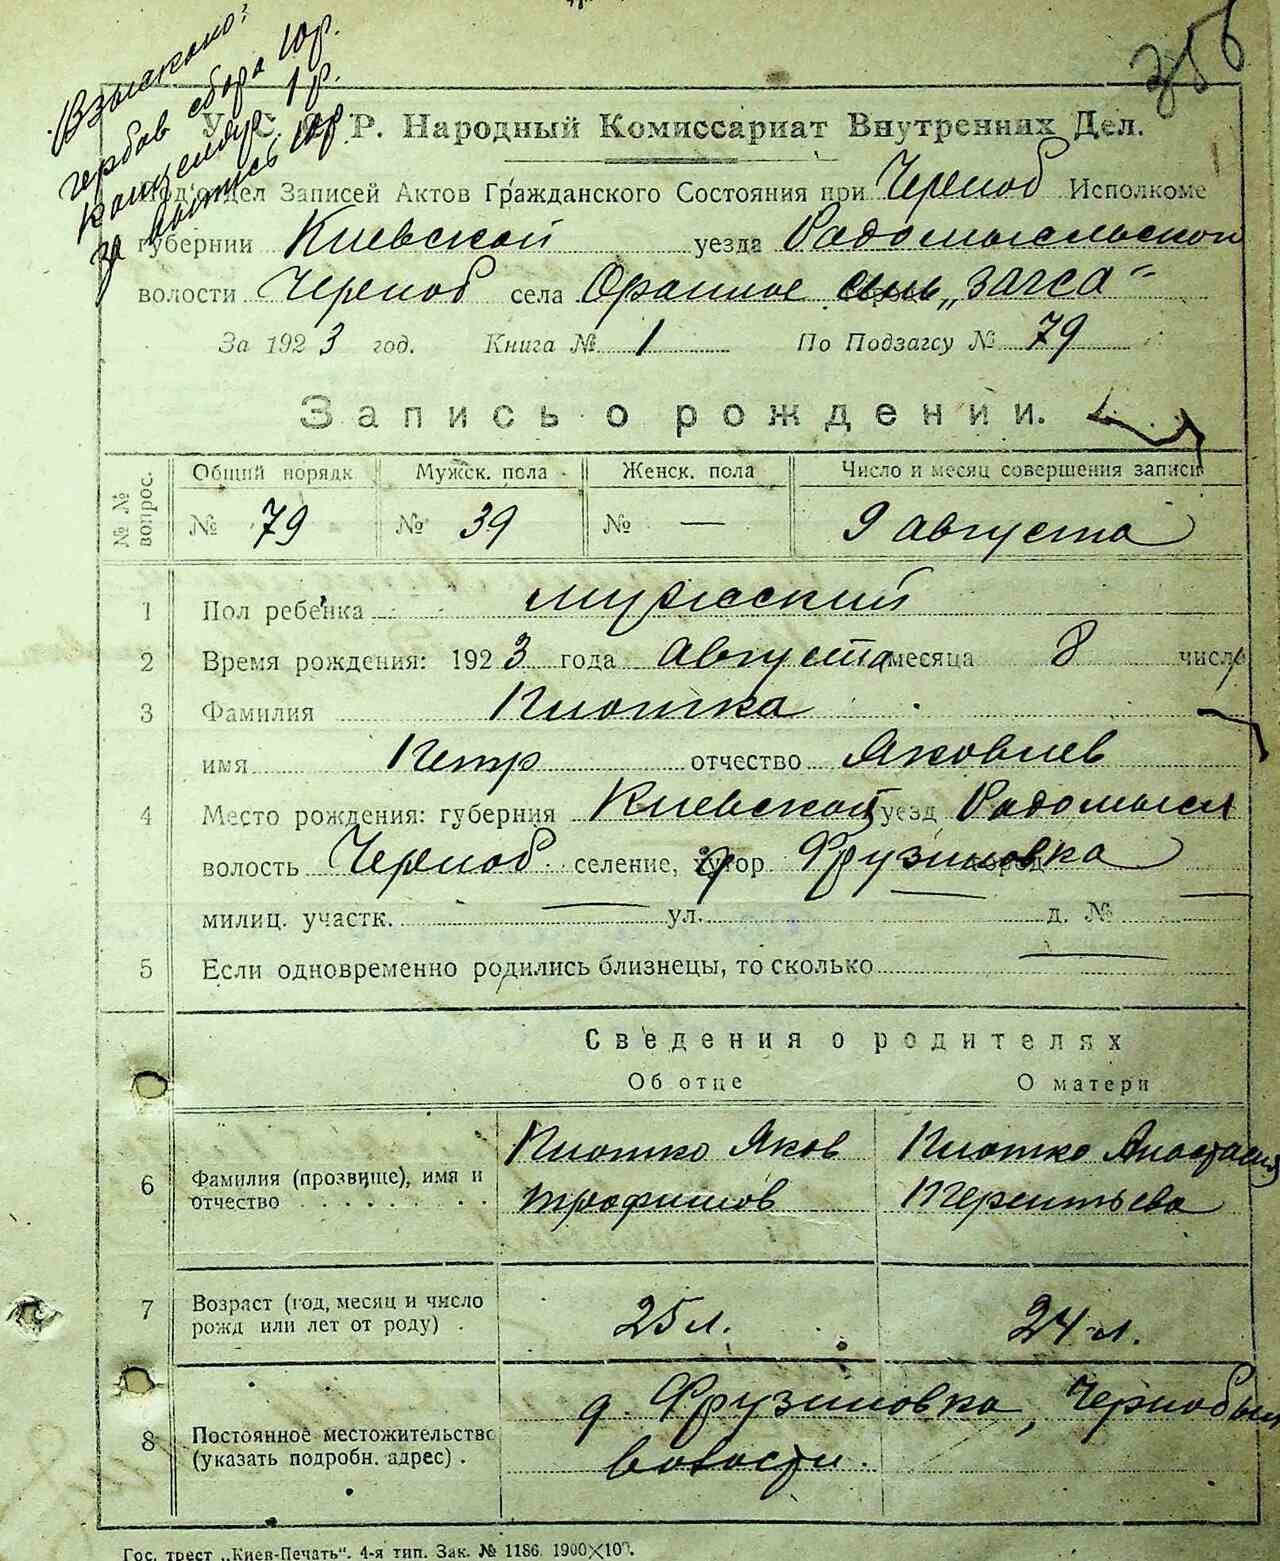 356
Взыскано:
гербов сбора 10р.
канцеляр. 1 р.
за выпись 10р.
У. С. С. Р. Народный Комиссариат Внутренних Дел.
Под'отдел Записей Актов Гражданского Состояния при Черноб Исполкоме
губернии Киевской уезда Радомысльской
волости Черноб села Оранное "загса"
За 1923 год. Книга № 1 По Подзагсу № 79
Запись о рождении.
№ № вопрос.
Общий порядк Мужск. пола Женск. пола Число и месяц совершения записи
№ 79 № 39 № — 9 августа
1 Пол ребенка мужский
2 Время рождения: 1923 года августа месяца 8 число
3 Фамилия Плотка
имя Петр отчество Яковлев
4 Место рождения: губерния Киевской уезд Радомысл
волость Черноб селение, хутор Фрузиновка
милиц. участк. — ул. — д. № —
5 Если одновременно родились близнецы, то сколько —
Сведения о родителях
Об отце О матери
Плотко Яков Плотко Анастасия
6 Фамилия (прозвище), имя и
отчество Трофимов Терентьева
7 Возраст (год, месяц и число
рожд или лет от роду) . 25 л. 24 л.
д. Фрузиновка, Чернобыл
8 Постоянное местожительство
(указать подробн. адрес) . волости.
Гос. трест „Киев-Печать". 4-я тип. Зак. № 1186. 1900×100.